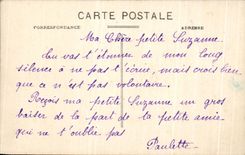 CARTE POSTALE
CORRESPONDANCE
ADRESSE
Ma Chère petite Suzanne
tu vas t'étonner de mon long
silence à ne pas t'écrire, mais crois bien
que ce n'est pas volontaire.
Reçois ma petite Suzanne un gros
baiser de la part de ta petite amie
qui ne t'oublie pas
Paulette